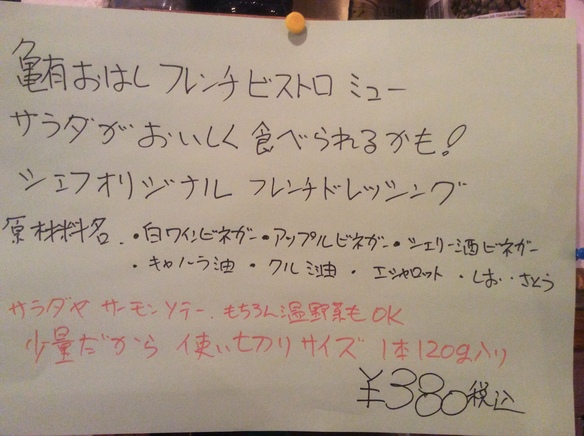 亀有おはしフレンチビストロ ミュー
サラダがおいしく食べられるかも!
シェフオリジナル フレンチドレッシング
原材料名.・白ワインビネガー・アップルビネガー・シェリー酒ビネガー
・キャノーラ油・クルミ油・エシャロット・しお・さとう
サラダや サーモンソテー、もちろん温野菜もOK
少量だから 使い切りサイズ 1本120g入り
¥380税込